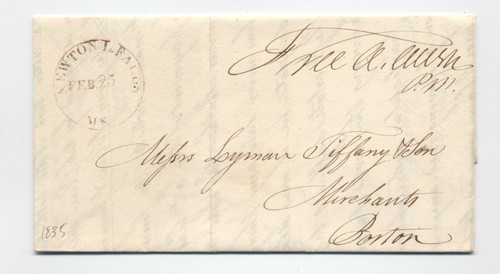 NEWTON L. FALLS
FEB. 25
MS.
Free
P.M.
Messrs Lyman Tiffany & Son
Merchants
Boston
1835